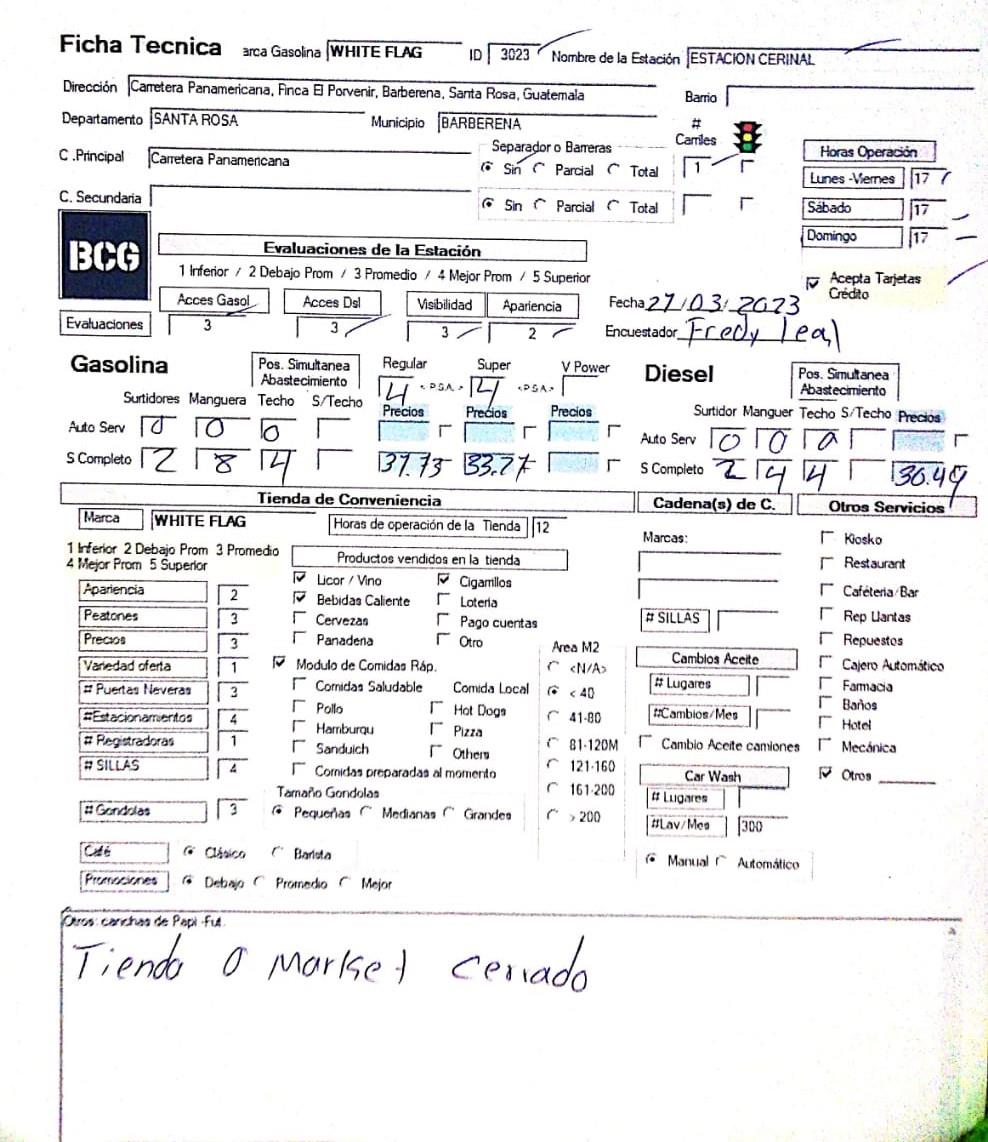 Ficha Tecnica arca Gasolina WHITE FLAG ID 3023 Nombre de la Estación ESTACION CERINAL
Dirección Carretera Panamericana, Finca El Porvenir, Barberena, Santa Rosa, Guatemala Barrio
Departamento SANTA ROSA Municipio BARBERENA # Carriles
C .Principal Carretera Panamericana Separador o Barreras Sin Parcial Total 1 Horas Operación
Lunes -Viernes 17
C. Secundaria Sin Parcial Total Sábado 17
Domingo 17
BCG Evaluaciones de la Estación
1 Inferior / 2 Debajo Prom / 3 Promedio / 4 Mejor Prom / 5 Superior Acepta Tarjetas Crédito
Acces Gasol Acces Dsl Visibilidad Apariencia Fecha 27/03/2023
Evaluaciones 3 3 3 2 Encuestador Fredy Leal
Gasolina Pos. Simultanea Abastecimiento Regular Super V Power Diesel Pos. Simultanea Abastecimiento
4 <PSA> 4 <PSA>
Surtidores Manguera Techo S/Techo Precios Precios Precios Surtidor Manguer Techo S/Techo Precios
Auto Serv 0 0 0 Auto Serv 0 0 0
S Completo 2 8 4 31.73 33.27 S Completo 2 4 4 30.49
Tienda de Conveniencia Cadena(s) de C. Otros Servicios
Marca WHITE FLAG Horas de operación de la Tienda 12 Marcas: Kiosko
1 Inferior 2 Debajo Prom 3 Promedio
4 Mejor Prom 5 Superior Productos vendidos en la tienda Restaurant
Apariencia 2 Licor / Vino Cigarrillos Caféteria/Bar
Bebidas Caliente Loteria
Peatones 3 Cervezas Pago cuentas # SILLAS Rep Llantas
Precios 3 Panaderia Otro Area M2 Repuestos
Variedad oferta 1 Modulo de Comidas Ráp. <N/A> Cambios Aceite Cajero Automático
# Puertas Neveras 3 Comidas Saludable Comida Local < 40 # Lugares Farmacia
#Estacionamientos 4 Pollo Hot Dogs 41-80 #Cambios/Mes Baños
Hamburqu Pizza Hotel
# Registradoras 1 Sanduich Others 81-120M Cambio Aceite camiones Mecánica
# SILLAS 4 Comidas preparadas al momento 121-160 Car Wash Otros
Tamaño Gondolas 161-200 # Lugares
# Gondolas 3 Pequeñas Medianas Grandes > 200 #Lav/Mes 300
Café Clásico Barista Manual Automático
Promociones Debajo Promedio Mejor
Otros: canchas de Papi -Fut.
Tienda o Market cerrado